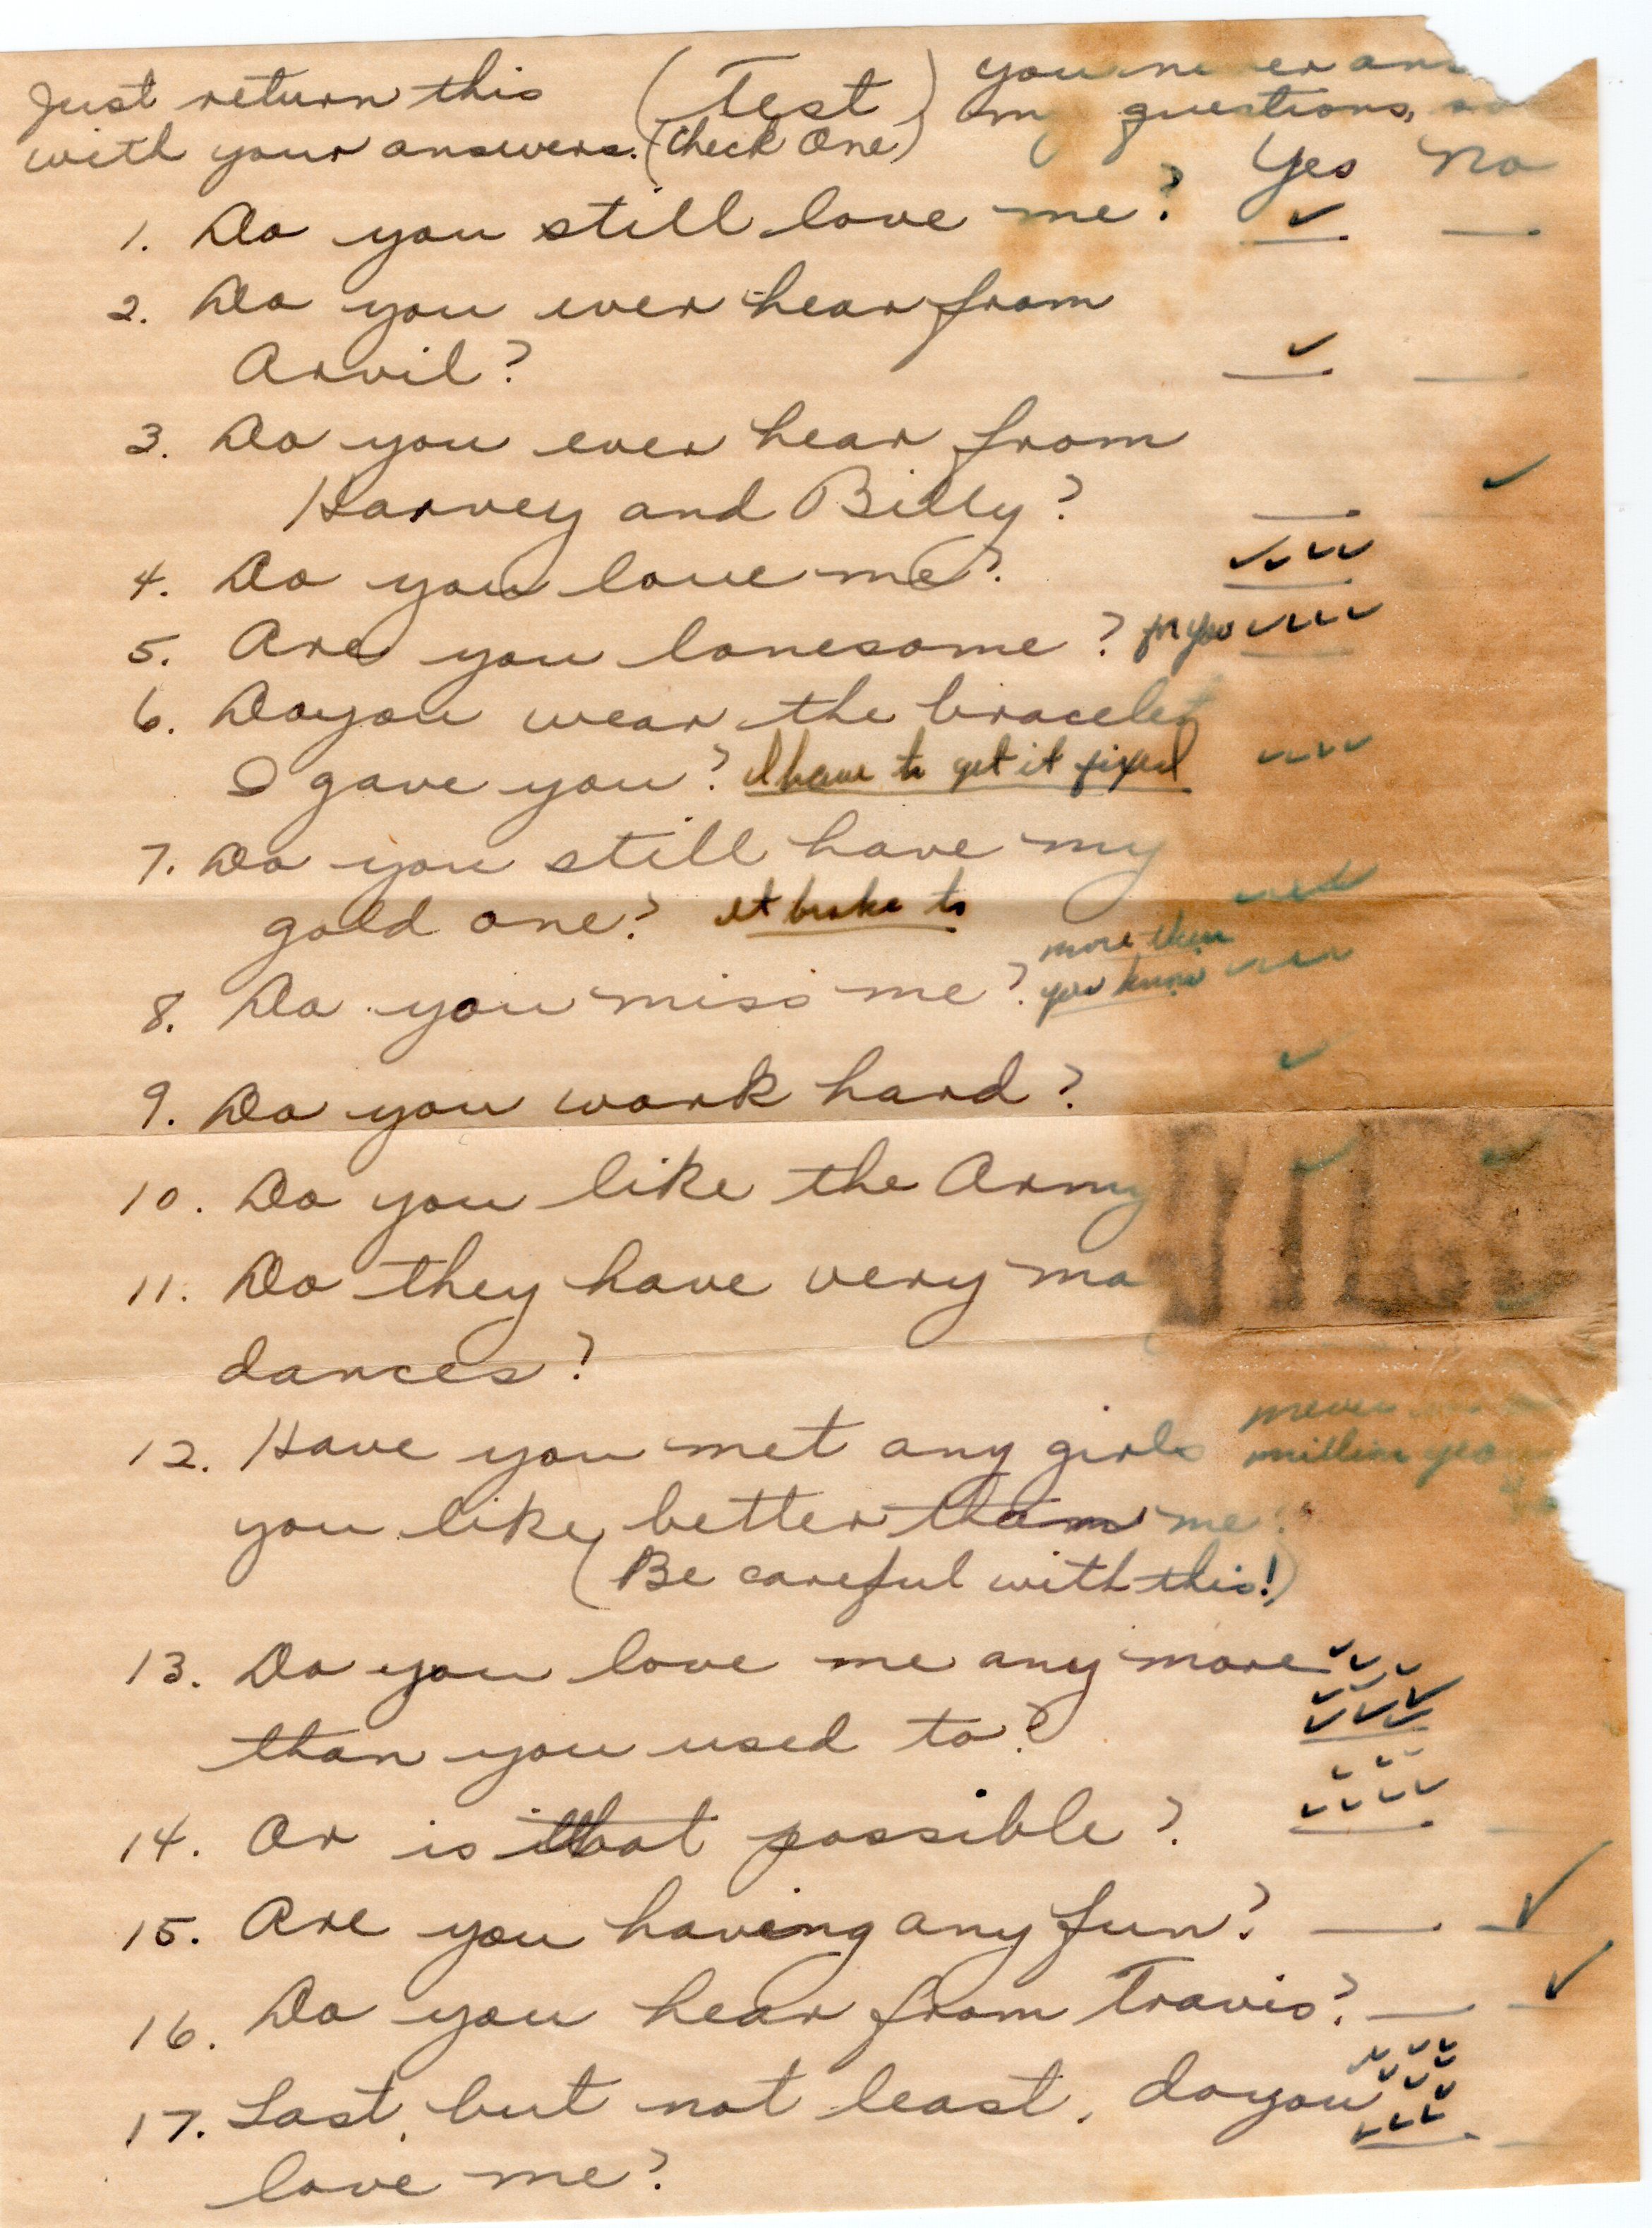 Just return this (Test) you never
with your answers. (Check One) my questions,
Yes No
1. Do you still love me? ✓
2. Do you ever hear from
Arvil? ✓
3. Do you ever hear from
Harvey and Billy? ✓
4. Do you love me? ✓✓✓✓
5. Are you lonesome? for you ✓✓✓✓
6. Do you wear the bracelet
I gave you? I have to get it fixed ✓✓✓✓
7. Do you still have my
gold one? It broke to ✓✓✓✓
8. Do you miss me? more than you know ✓✓✓✓
9. Do you work hard? ✓
10. Do you like the Army ✓ ✓
11. Do they have very ma
dances?
12. Have you met any girls never
you like better than me? million
(Be careful with this!)
13. Do you love me any more ✓✓✓
than you used to? ✓✓✓✓✓✓
14. Or is that possible? ✓✓✓✓✓✓✓
15. Are you having any fun? ✓
16. Do you hear from Travis? ✓
17. Last, but not least, do you ✓✓✓✓✓✓✓✓✓✓✓✓
love me?